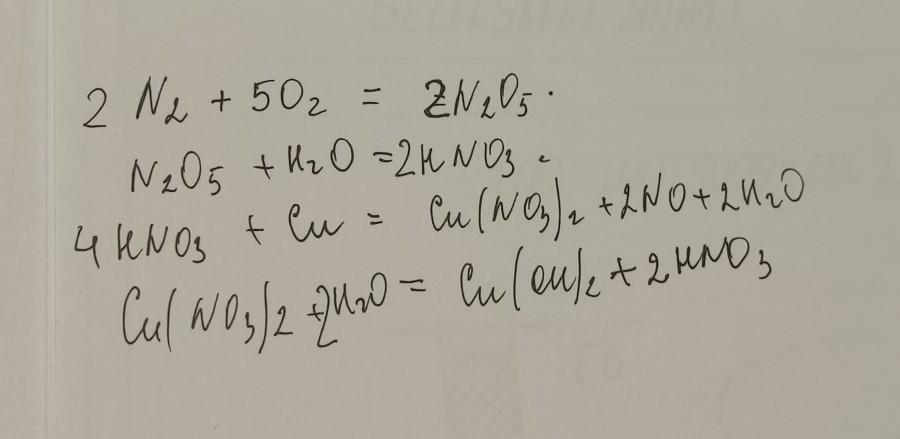 2 N₂ + 5O₂ = 2N₂O₅.
N₂O₅ + H₂O = 2HNO₃.
4HNO₃ + Cu = Cu(NO₃)₂ + 2NO + 2H₂O
Cu(NO₃)₂ + 2H₂O = Cu(OH)₂ + 2HNO₃